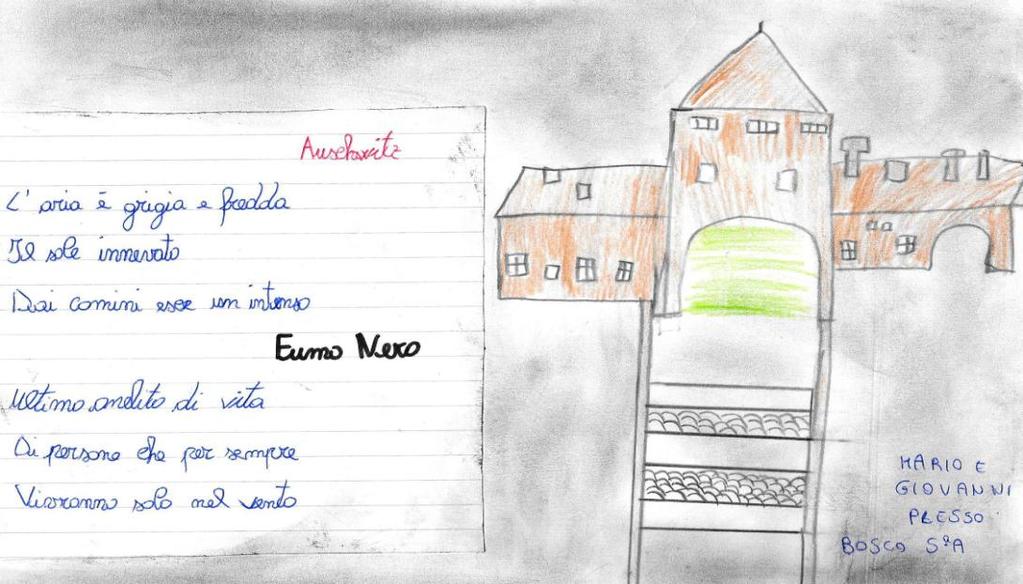 Auschwitz
L'aria è grigia e fredda
Il sole innevato
Dai comini esce un intenso
Fumo Nero
Ultimo andito di vita
Di persone che per sempre
Vivranno solo nel vento
MARIO E
GIOVANNI
PLESSO
BOSCO 5ªA